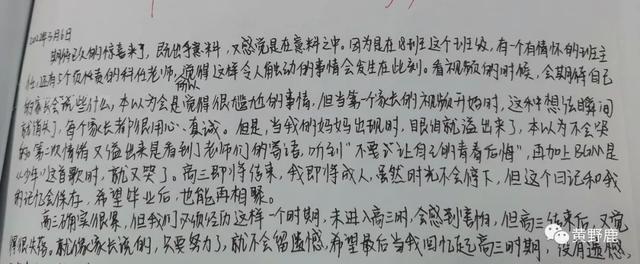 2022年3月6日
期待已久的惊喜来了，既出乎意料，又感觉是在意料之中。因为是在8班这个班级，有一个有情怀的班主
任，还有5个负责责的科任老师，所以觉得这样令人触动的事情会发生在此刻。看视频的时候，会期待自己
的家长会说些什么，本以为会是觉得很尴尬的事情，但当第一个家长的视频开始时，这种想法瞬间
就消失了，每个家长都很用心、真诚。但是，当我的妈妈出现时，眼泪就溢出来了，本以为不会哭
第二次情绪又溢出来是看到老师们的寄语，听到“不要让自己的青春后悔”，再加上BGM是
《少年》这首歌时，就又哭了。高三即将结束，我即将成人，虽然时光不会停下，但这个日记和我
的记忆会保存，希望毕业后，也能再相聚。
高三确实很累，但我们必须经历这样一个时期，未进入高三时，会感到害怕，但高三结束后，又觉
得很失落。就像家长说的，只要努力了，就不会留遗憾，希望最后当我回忆起高三时期，没有遗憾，
黄野鹿